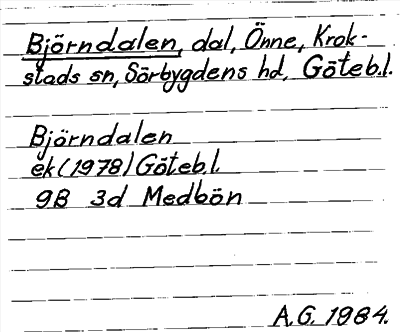 Björndalen, dal, Önne, Krok-
stads sn, Sörbygdens hd, Göteb.l.
Björndalen
ek (1978) Göteb.l.
9B 3d Medbön
A.G. 1984.